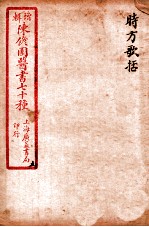 時方歌括
增輯
陳修園醫書七十種
上海廣益書局
印行